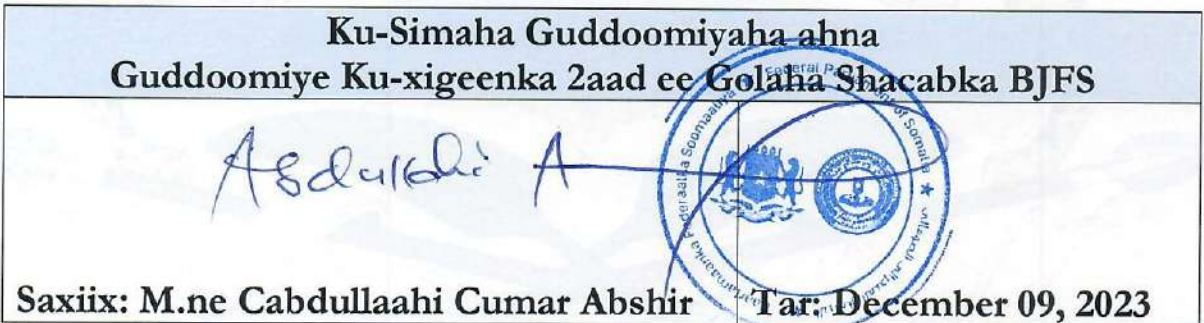 Ku-Simaha Guddoomiyaha ahna
Guddoomiye Ku-xigeenka 2aad ee Golaha Shacabka BJFS
Federal Parliament of Somalia
Saxiix: M.ne Cabdullaahi Cumar Abshir
Tar: December 09, 2023